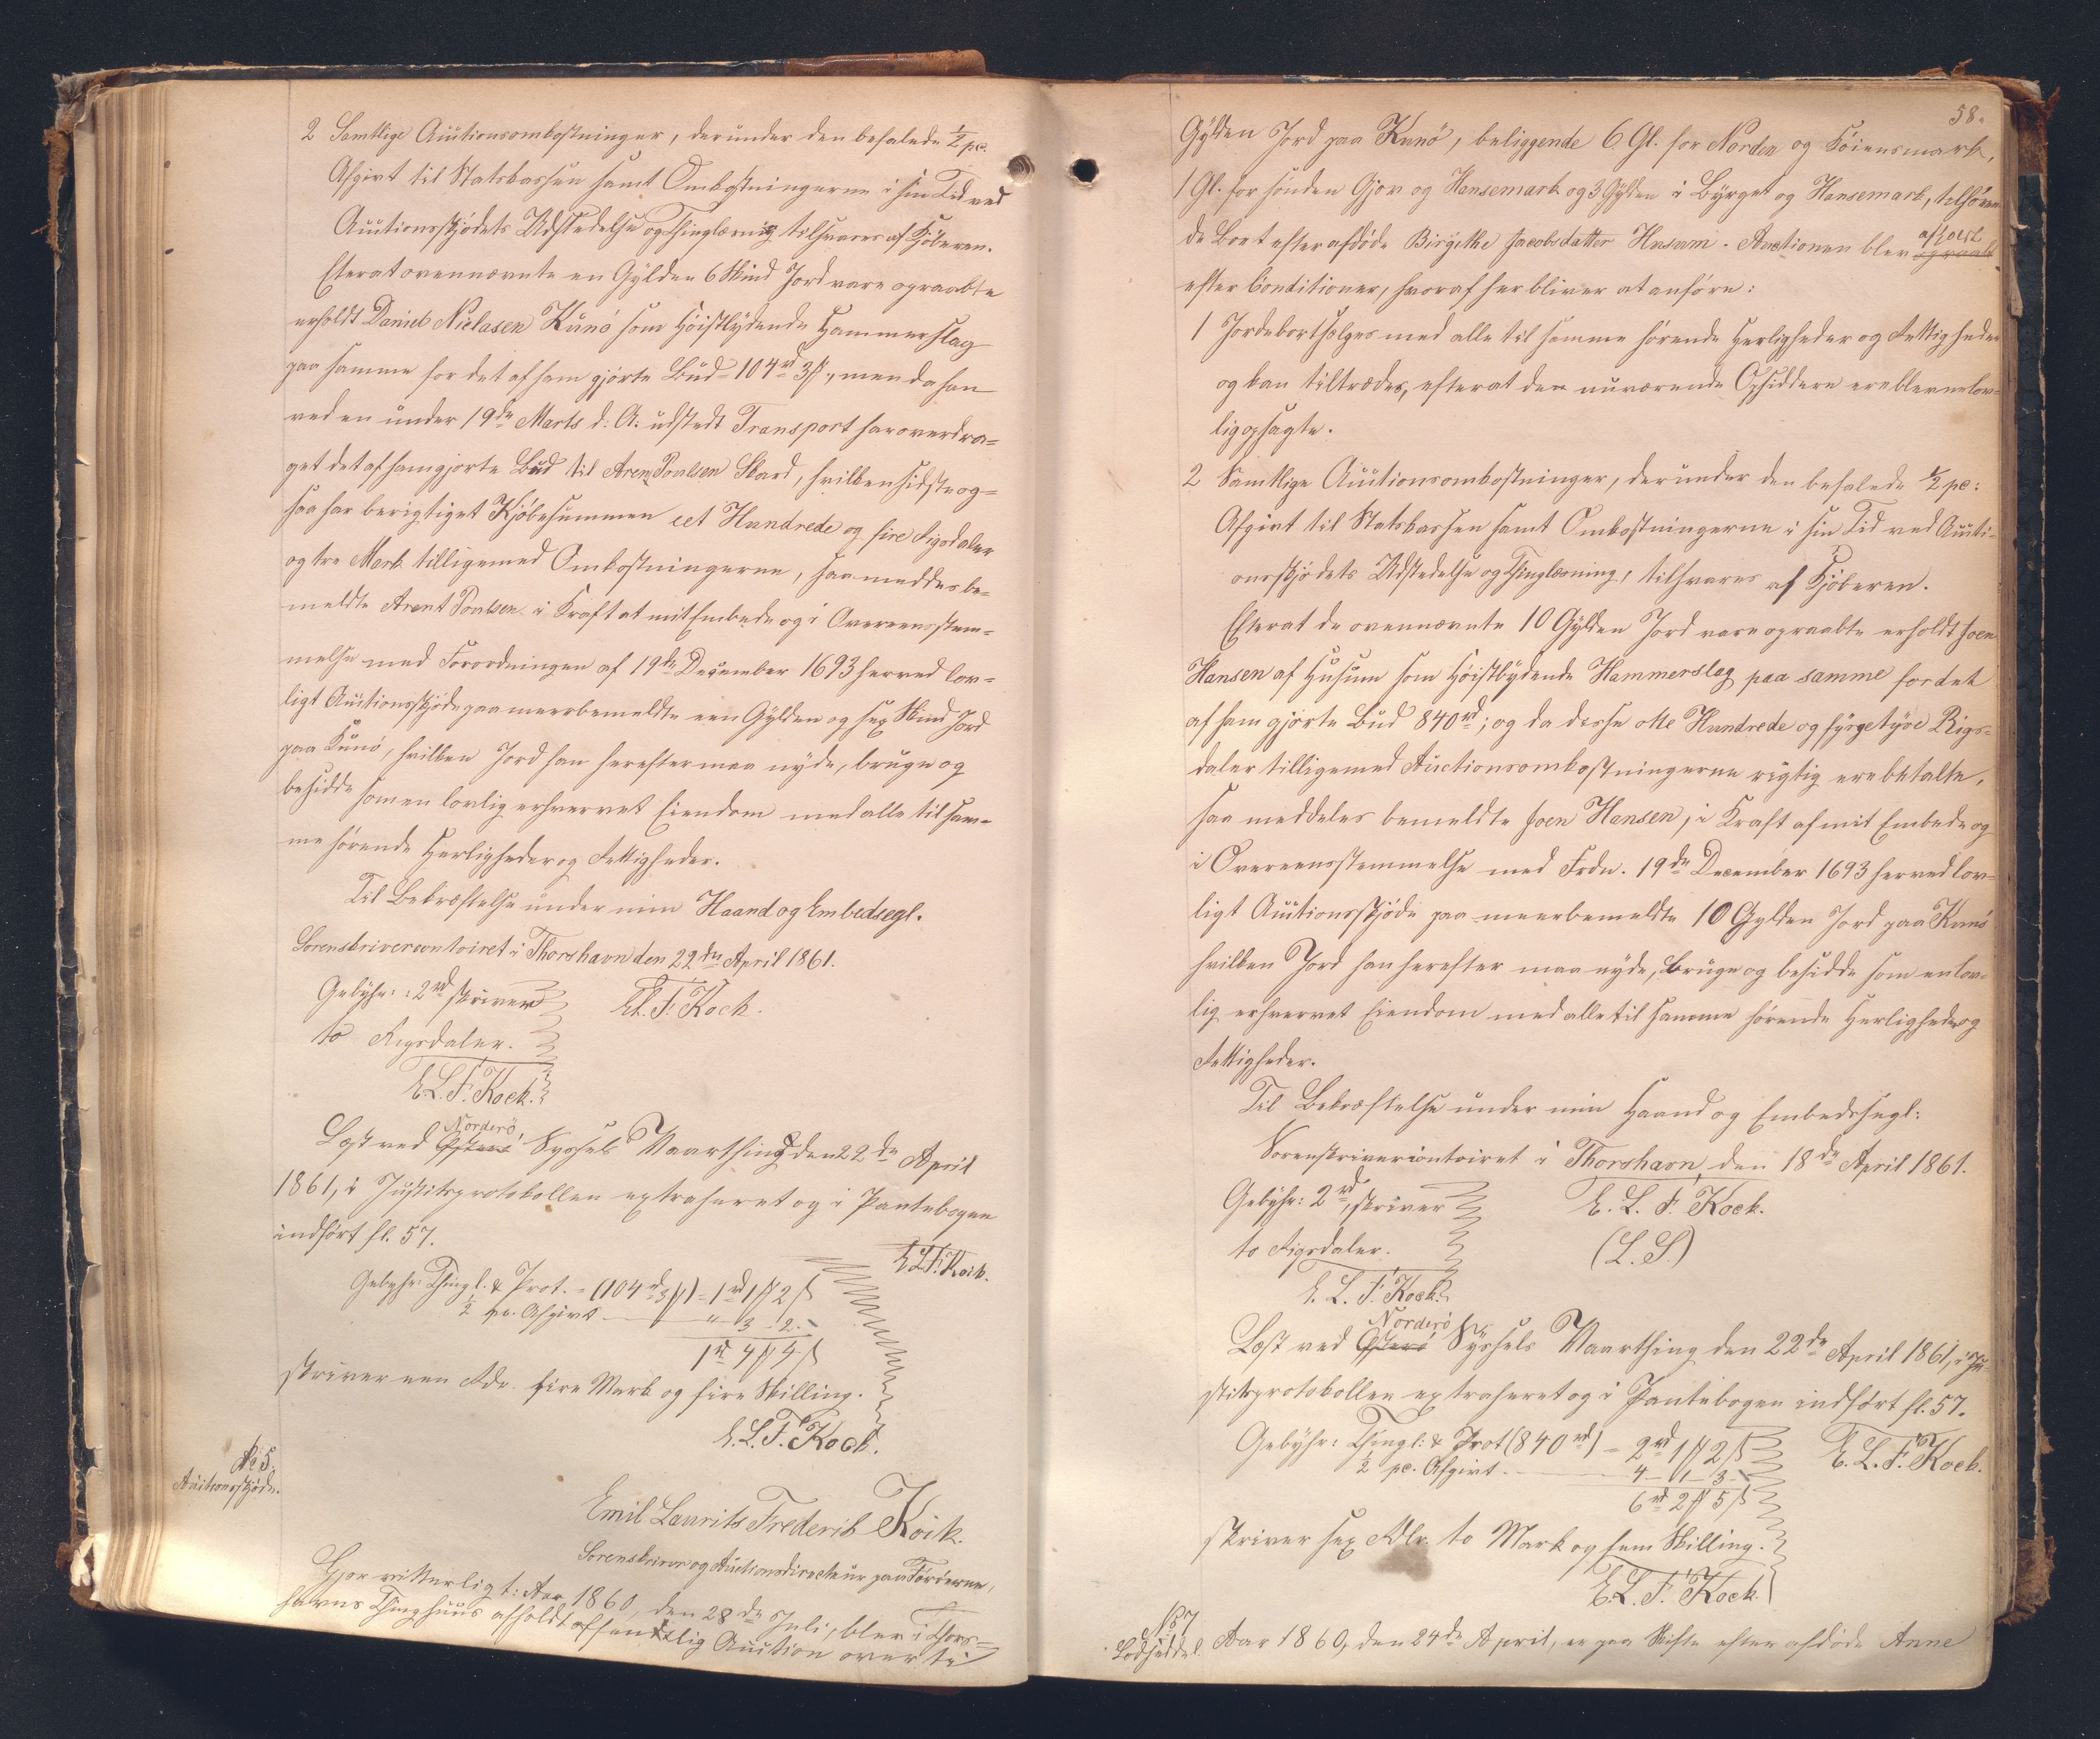 2 Samtlige Auctionsomkostninger, derunder den befalede ½ pc.
Afgivt til Statskassen samt Omkostningerne i sin Tid ved
Auctionsskjødets Udstedelse og Thinglæsning tilsvares af Kjøberen.
Efterat ovennævnte en Gylden 6 Skind Jord vare opraabte
erholdt Daniel Nielasen Kunø som Høistbydende Hammerslag
paa samme for det af ham gjorte Bud 104 rd 3 ß, men da han
ved en under 19de Marts d. A. udstedt Transport har overdra=
get det af ham gjorte Bud til Arent Poulsen Skard, hvilken sidste og=
saa har berigtiget Kjøbesummen eet Hundrede og fire Rigsdaler
og tre Mark tilligemed Omkostningerne, saa meddeles be=
meldte Arent Poulsen i Kraft at mit Embede og i Overeensstem=
melse med Forordningen af 19de December 1693 herved lov=
ligt Auctionsskjøde paa meerbemeldte een Gylden og sex Skind Jord
paa Kunø, hvilken Jord han herefter maa nyde, bruge og
besidde som en lovlig erhvervet Eiendom med alle til sam=
me hørende Herligheder og Rettigheder.
Til Bekræftelse under min Haand og Embedsegl.
Sorenskrivercontoiret i Thorshavn den 22de April 1861.
Gebyhr: 2 rd skriver E. L. F. Koch.
to Rigsdaler.
E. L. F. Koch.
Norderø
Læst ved Østerø Syssels Vaarthing den 22de April
1861, i Justitsprotokollen extraheret og i Pantebogen
indført fl. 57.
E. L. F. Koch.
Gebyhr: Thingl. & Prot. = (104 rd 3 ß) = 1 rd 1 ß 2 ß
½ pc. Afgivt " 3 - 2 -
1 rd 4 ß 4 ß
skriver een Rdr. fire Mark og fire Skilling.
E. L. F. Koch.
№ 5.
Auctionsskjøde.
Emil Laurits Frederik Koch.
Sorenskriver og Auctionsdirecteur paa Færøerne,
Gjør vitterligt: Aar 1860, den 28de Juli, blev i Thors=
havns Thinghuus afholdt offentlig Auction over ti
58.
Gylden Jord paa Kunø, beliggende 6 Gl. for Norden og Föiensmark,
1 Gl. for sönden Gjov og Hansemark og 3 Gylden i Byrget og Hansemark, tilhøren
afholdt
de Boet efter afdøde Birgithe Jacobsdatter Husum. Auctionen blev opraabt
efter Conditioner, hvoraf her bliver at anføre:
1 Jorde bortsælges med alle til samme hørende Herligheder og Rettigheder
og kan tiltrædes, efterat den nuværende Opsiddere ere blevne lov=
lig opsagte.
2 Samtlige Auctionsomkostninger, derunder den befalede ½ pc:
Afgivt til Statskassen samt Omkostningerne i sin Tid ved Aucti=
onsskjødets Udstedelse og Thinglæsning, tilsvares af Kjøberen.
Efterat de ovennævnte 10 Gylden Jord vare opraabte erholdt Joen
Hansen af Husum som Høistbydende Hammerslag paa samme for det
af ham gjorte Bud 840 rd; og da disse otte Hundrede og fyrgetyve Rigs=
daler tilligemed Auctionsomkostningerne rigtig ere betalte,
saa meddeles bemeldte Joen Hansen, i Kraft af mit Embede og
i Overeensstemmelse med Frdn. 19de December 1693 herved lov=
ligt Auctionsskjøde paa meerbemeldte 10 Gylden Jord paa Kunø
hvilken Jord han herefter maa nyde, bruge og besidde som en lov=
lig erhvervet Eiendom med alle til samme hørende Herligheder og
Rettigheder.
Til Bekræftelse under min Haand og Embedssegl:
Sorenskrivercontoiret i Thorshavn, den 18de April 1861.
Gebyhr: 2 rd, skriver E. L. F. Koch.
to Rigsdaler. (L. S)
E. L. F. Koch.
Norderø
Læst ved Østerø Syssels Vaarthing den 22de April 1861, i Ju
stitsprotokollen extraheret og i Pantebogen indført fl. 57.
Gebyhr: Thingl: & Prot (840 rd) = 2 rd 1 ß 2 ß E. L. F. Koch.
½ pc. Afgivt. 4 - 1 - 3 -
6 rd 2 ß 5 ß
skriver sex Rdlr. to Mark og fem Skilling.
E. L. F. Koch.
№ 7
Lodseddel. Aar 1860, den 24de April, er paa Skifte efter afdøde Anne